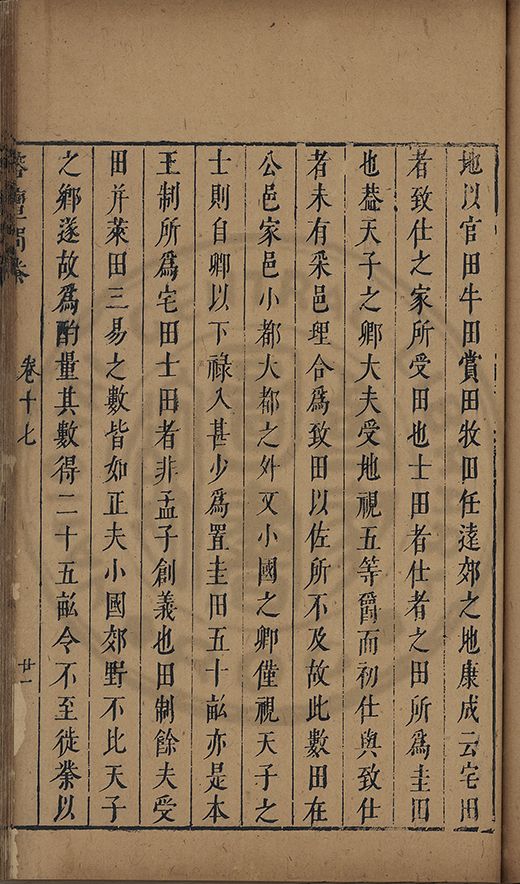 地以官田牛田賞田牧田任遠郊之地康成云宅田
者致仕之家所受田也士田者仕者之田所爲圭田
也葢天子之卿大夫受地視五等爵而初仕與致仕
者未有采邑理合爲致田以佐所不及故此數田在
公邑家邑小都大都之外又小國之卿僅視天子之
士則自卿以下祿入甚少爲置圭田五十畝亦是本
王制所爲宅田士田者非孟子創義也田制餘夫受
田并萊田三易之數皆如正夫小國郊野不比天子
之鄉遂故爲酌量其數得二十五畝令不至徒勞以
卷十七
廿一